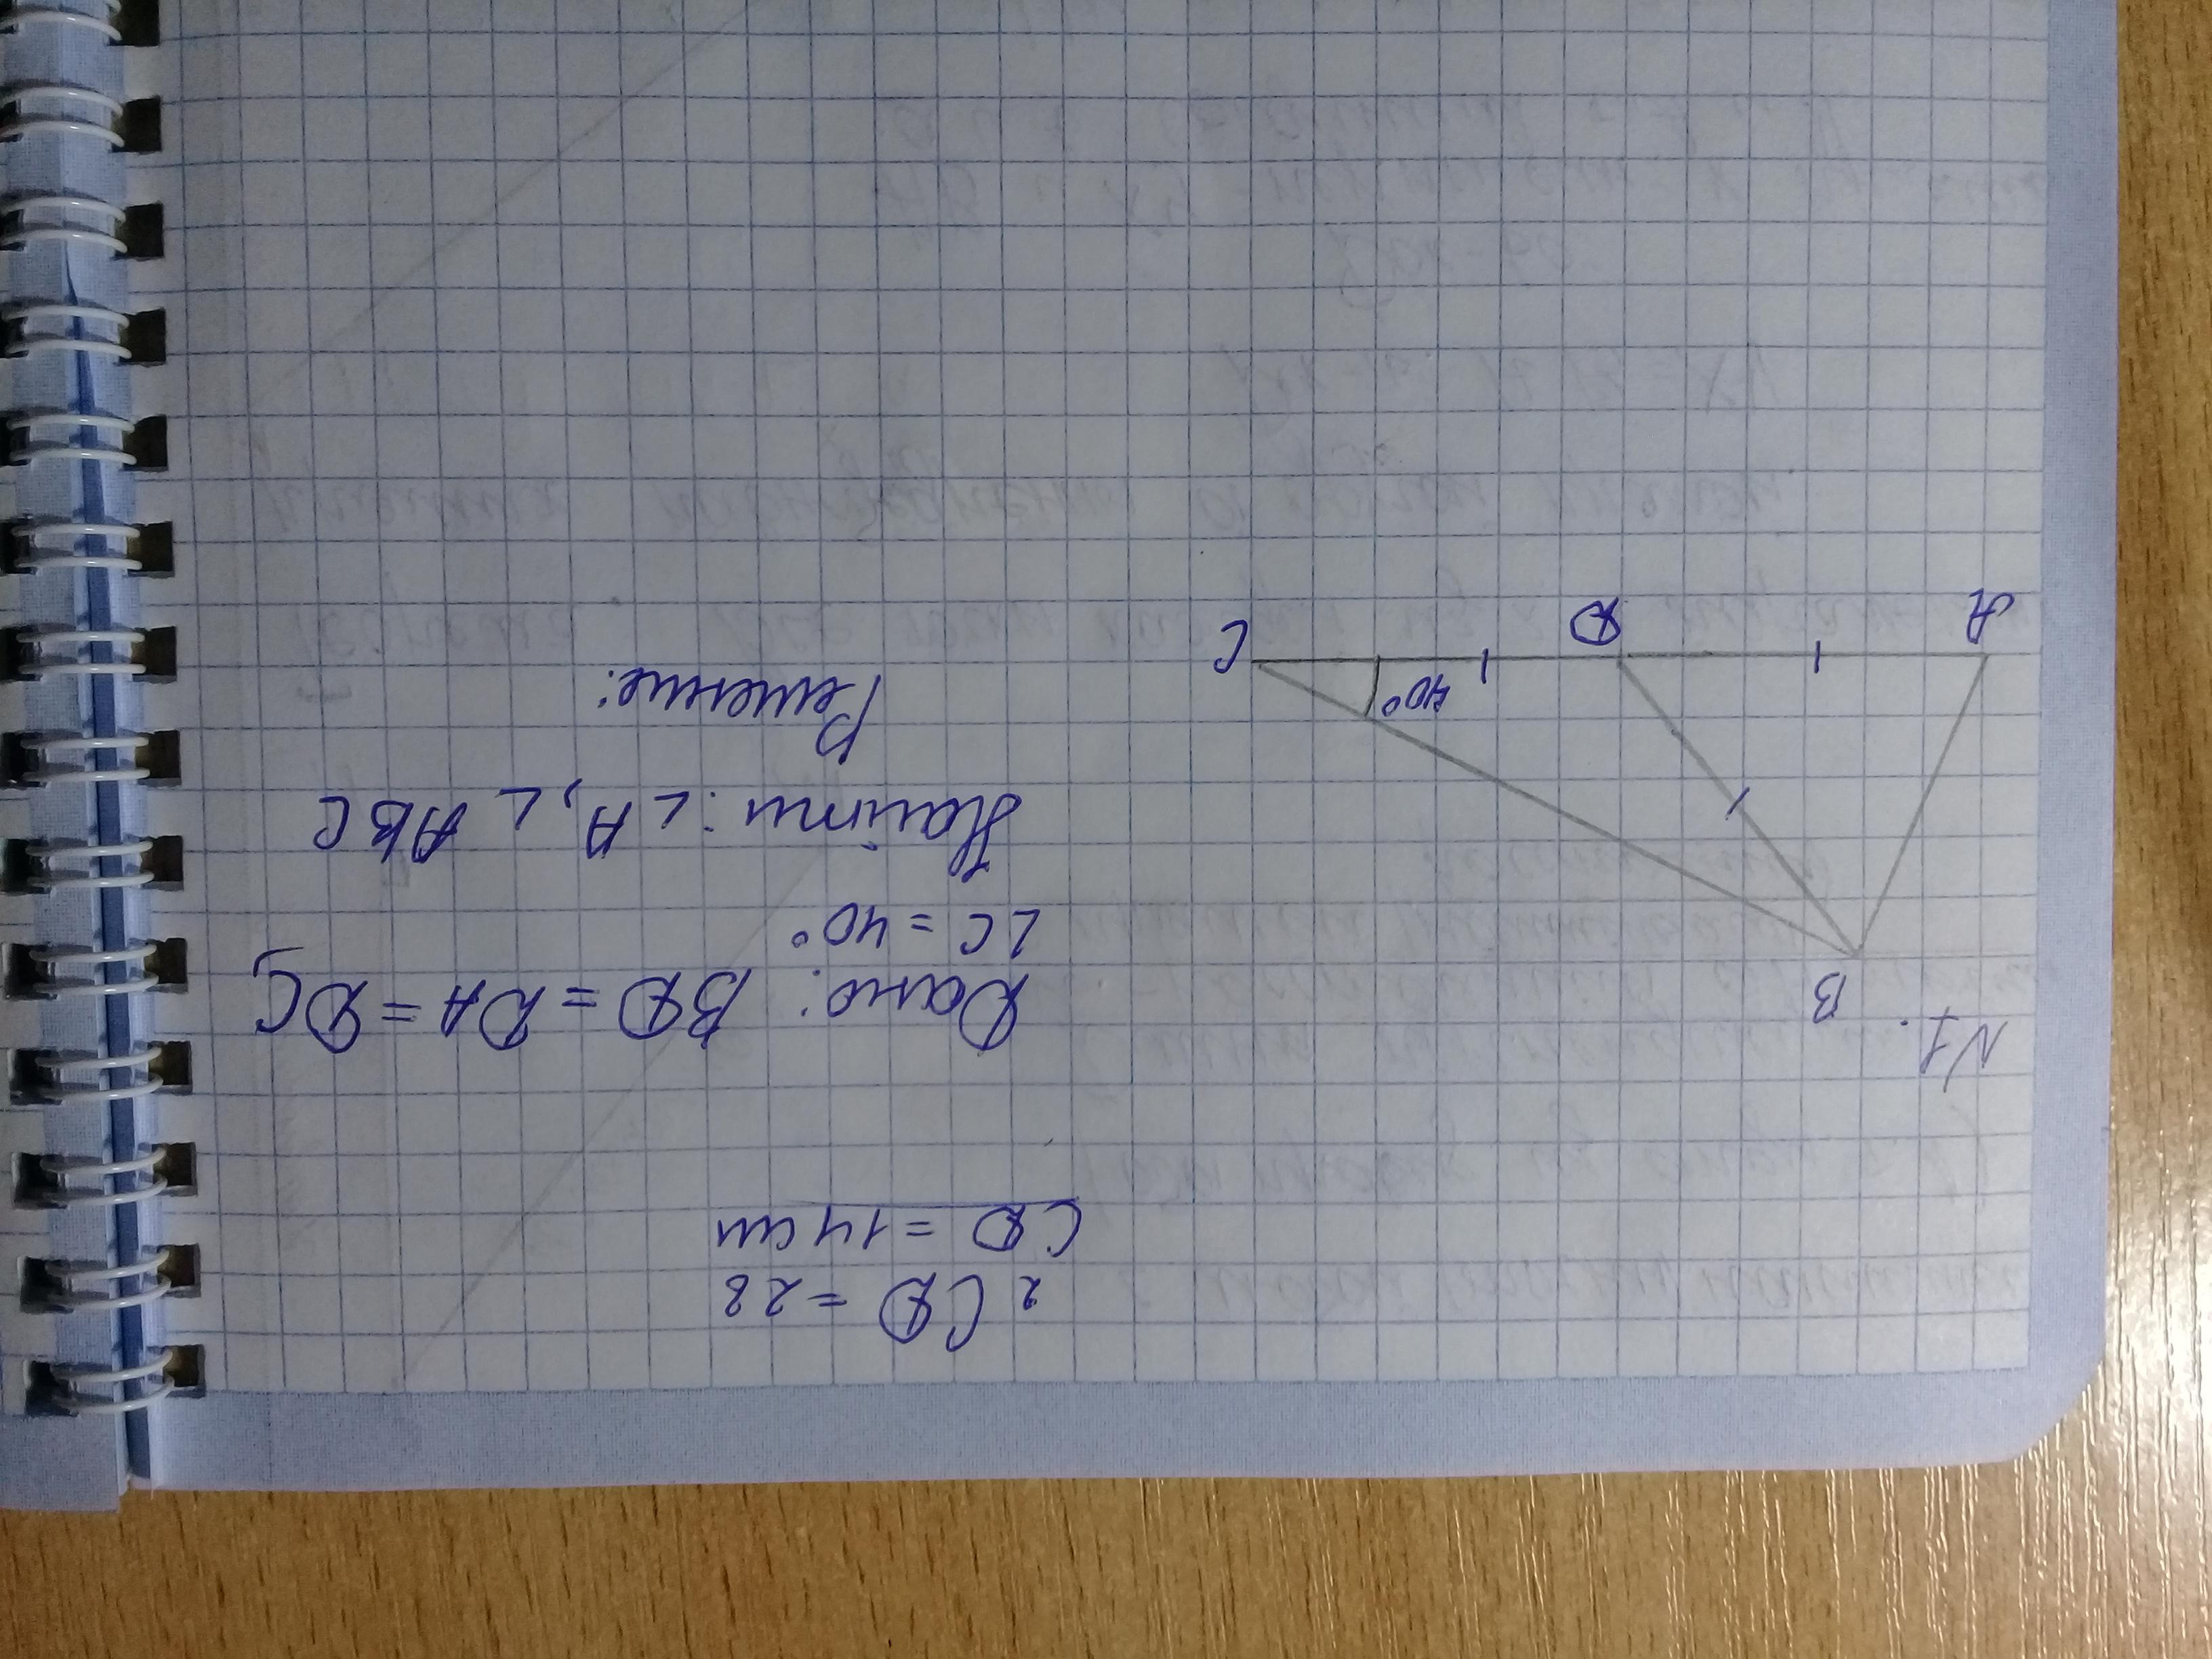 2CD = 28
CD = 14 см
№1.
B
A
D
C
40°
Дано: BD = DA = DC,
∠C = 40°
Найти: ∠A, ∠ABC
Решение: